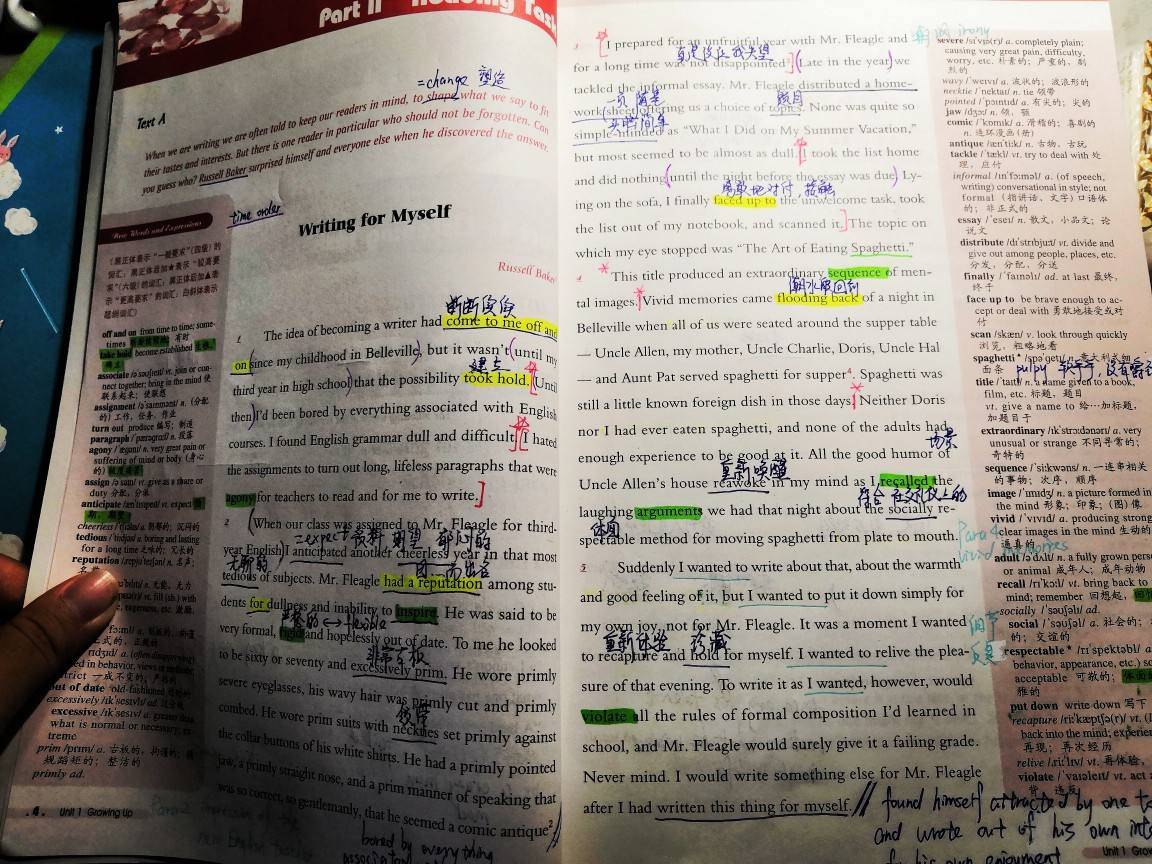 Part II
Text A
=change 塑造
When we are writing we are often told to keep our readers in mind, to shape what we say to fit
their tastes and interests. But there is one reader in particular who should not be forgotten. Can
you guess who? Russell Baker surprised himself and everyone else when he discovered the answer.
time order
Writing for Myself
Russell Baker
New Words and Expressions
off and on from time to time; some-
times 有时
take hold become established
associate
nect together; bring in the mind
联系起来; 使联想
assignment
的) 工作, 任务, 作业
turn out produce 编写; 制造
paragraph n. 段落
agony n. very great pain or
suffering of mind or body (身心
assign vt. give as a share or
duty 分配, 分派
anticipate vt. expect
cheerless a. 阴郁的; 沉闷的
tedious a. boring and lasting
for a long time 乏味的; 冗长的
reputation n. 名声;
out of date old-fashioned
excessively
excessive a. greater than
what is normal or necessary; ex-
treme
prim a. 古板的, 拘谨的; 循
规蹈矩的; 整洁的
primly ad.
断断续续
1 The idea of becoming a writer had come to me off and
on since my childhood in Belleville, but it wasn't until my
建立
third year in high school that the possibility took hold. Until
then I'd been bored by everything associated with English
courses. I found English grammar dull and difficult. I hated
the assignments to turn out long, lifeless paragraphs that were
agony for teachers to read and for me to write.
2 When our class was assigned to Mr. Fleagle for third-
=expect 预料 期望 郁闷的
year English I anticipated another cheerless year in that most
无聊的
因…而出名
tedious of subjects. Mr. Fleagle had a reputation among stu-
dents for dullness and inability to inspire. He was said to be
严格的 ↔ flexible
very formal, rigid and hopelessly out of date. To me he looked
非常古板
to be sixty or seventy and excessively prim. He wore primly
severe eyeglasses, his wavy hair was primly cut and primly
领带
combed. He wore prim suits with neckties set primly against
the collar buttons of his white shirts. He had a primly pointed
jaw, a primly straight nose, and a prim manner of speaking that
was so correct, so gentlemanly, that he seemed a comic antique2
bored by everything
.4. Unit 1 Growing Up
3 I prepared for an unfruitful year with Mr. Fleagle and
for a long time was not disappointed3. Late in the year we
tackled the informal essay. Mr. Fleagle distributed a home-
题目
work sheet offering us a choice of topics. None was quite so
头脑简单
simple-minded as "What I Did on My Summer Vacation,"
but most seemed to be almost as dull. I took the list home
and did nothing until the night before the essay was due. Ly-
勇敢地对付, 接触
ing on the sofa, I finally faced up to the unwelcome task, took
the list out of my notebook, and scanned it. The topic on
which my eye stopped was "The Art of Eating Spaghetti."
4 This title produced an extraordinary sequence of men-
潮水般回到
tal images. Vivid memories came flooding back of a night in
Belleville when all of us were seated around the supper table
— Uncle Allen, my mother, Uncle Charlie, Doris, Uncle Hal
— and Aunt Pat served spaghetti for supper4. Spaghetti was
still a little known foreign dish in those days. Neither Doris
nor I had ever eaten spaghetti, and none of the adults had
enough experience to be good at it. All the good humor of
重新唤醒
场景
Uncle Allen's house reawoke in my mind as I recalled the
符合 社交礼仪上的
laughing arguments we had that night about the socially re-
体面
spectable method for moving spaghetti from plate to mouth.
5 Suddenly I wanted to write about that, about the warmth
and good feeling of it, but I wanted to put it down simply for
my own joy, not for Mr. Fleagle. It was a moment I wanted
重新体验 珍藏
to recapture and hold for myself. I wanted to relive the plea-
sure of that evening. To write it as I wanted, however, would
violate all the rules of formal composition I'd learned in
school, and Mr. Fleagle would surely give it a failing grade.
Never mind. I would write something else for Mr. Fleagle
after I had written this thing for myself.
found himself attracted by one
and wrote out of his own
his own enjoyment
irony
severe /sɪ'vɪə(r)/ a. completely plain;
causing very great pain, difficulty,
worry, etc. 朴素的; 严重的, 剧
烈的
wavy /'weɪvɪ/ a. 波状的; 波浪形的
necktie /'nektaɪ/ n. tie 领带
pointed /'pɔɪntɪd/ a. 有尖的; 尖的
jaw /dʒɔː/ n. 颌, 颚
comic /'kɒmɪk/ a. 滑稽的; 喜剧的
n. 连环漫画(册)
antique /æn'tiːk/ n. 古物, 古玩
tackle /'tækl/ vt. try to deal with 处
理, 应付
informal /ɪn'fɔːməl/ a. (of speech,
writing) conversational in style; not
formal (指讲话、文字)口语体
的; 非正式的
essay /'eseɪ/ n. 散文, 小品文; 论
说文
distribute /dɪ'strɪbjuːt/ vt. divide and
give out among people, places, etc.
分发, 分配, 分送
finally /'faɪnəlɪ/ ad. at last 最终,
终于
face up to be brave enough to ac-
cept or deal with 勇敢地接受或对
付
scan /skæn/ v. look through quickly
浏览, 粗略地看
spaghetti* /spə'getɪ/ n. 意大利式细
面条 pulpy
title /'taɪtl/ n. a name given to a book,
film, etc. 标题, 题目
vt. give a name to 给…加标题,
加题目于
extraordinary /ɪk'strɔːdənərɪ/ a. very
unusual or strange 不同寻常的;
奇特的
sequence /'siːkwəns/ n. 一连串相关
的事物; 次序, 顺序
image /'ɪmɪdʒ/ n. a picture formed in
the mind 形象; 印象; (图)像
vivid /'vɪvɪd/ a. producing strong
clear images in the mind 生动的
逼真的
adult /'ædʌlt/ n. a fully grown pers
or animal 成年人; 成年动物
recall /rɪ'kɔːl/ vt. bring back to
mind; remember 回想起,
socially /'səʊʃəlɪ/ ad.
social /'səʊʃəl/ a. 社会的;
的; 交谊的
respectable* /rɪ'spektəbl/ a.
behavior, appearance, etc.) so
acceptable 可敬的; 体面
雅的
put down write down 写下
recapture /riː'kæptʃə(r)/ vt.
back into the mind; experien
再现; 再次经历
relive /riː'lɪv/ vt. 再体验,
violate /'vaɪəleɪt/ vt. act
背, 违反
Unit 1 Grow